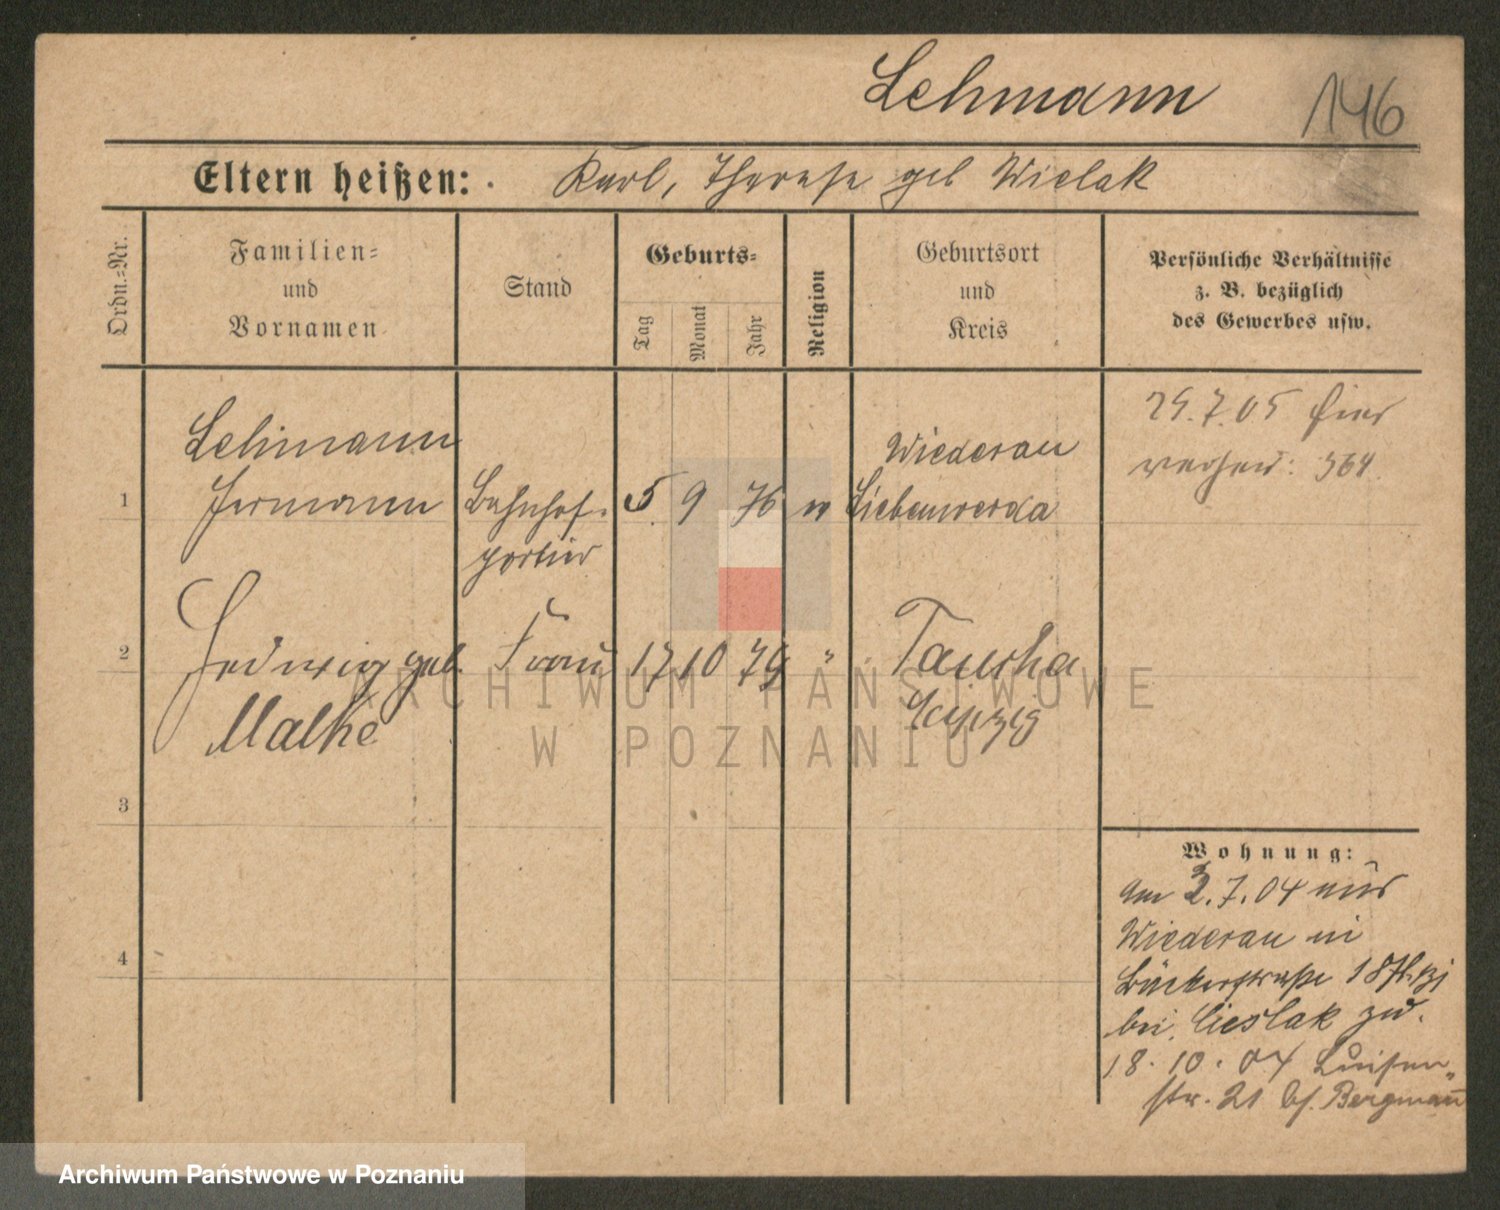 Lehmann
146
Eltern heißen: Karl, Therese geb Wielak
Ordn.-Nr.
Familien-
und
Vornamen
Stand
Geburts-
Tag
Monat
Jahr
Religion
Geburtsort
und
Kreis
Persönliche Verhältnisse
z. B. bezüglich
des Gewerbes usw.
Lehmann
1 Hermann Bahnhof- 5 9 76 Liebenwerda
Wiederau
portier
29.7.05 hier
364
2 Hedwig geb. Frau 17 10 79 " Taucha
Malke Leipzig
3
4
Wohnung:
Am 2.7.04 aus
Wiederau in
Bäckerstraße 18
bei Cieslak zu.
18.10.04 Luisen-
str. 21 b/. Bergmann
ARCHIWUM PAŃSTWOWE
W POZNANIU
Archiwum Państwowe w Poznaniu